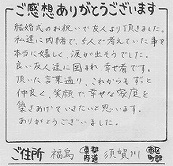 ご感想ありがとうございます
結婚式のお祝いで友人より頂きました。
私達に内緒で、5人で考えていた事や
本当に嬉しく涙が出そうでした。
良い友人達に囲まれ幸せ者です。
頂いた言葉通り、これからもずっと
仲良く笑顔で幸せな家庭を
築きあげていきたいと思います。
ありがとうございました。
ご住所 福島 都道府県 須賀川 市区町村